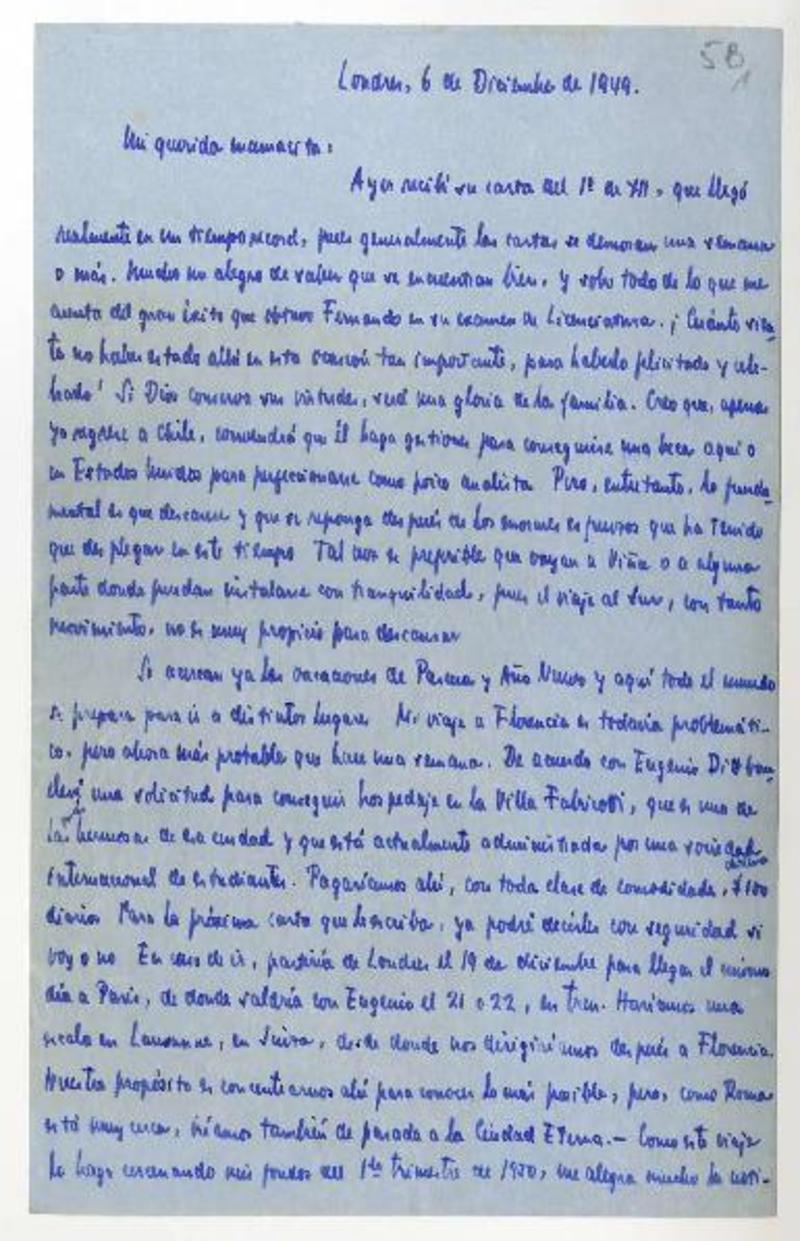 5B
1
Londres, 6 de Diciembre de 1949.
Mi querida mamacita:
Ayer recibí su carta del 1º de XII, que llegó
realmente en un tiempo record, pues generalmente las cartas se demoran una semana
o más. Mucho me alegro de saber que se encuentran bien, y sobre todo de lo que me
cuenta del gran éxito que obtuvo Fernando en su examen de Licenciatura. ¡Cuánto sien-
to no haber estado allá en esta ocasión tan importante, para haberlo felicitado y cele-
brado! Si Dios conserva sus virtudes, será una gloria de la familia. Creo que, apenas
yo regrese a Chile, convendrá que él haga gestiones para conseguirse una beca aquí o
en Estados Unidos para perfeccionarse como psico analista. Pero, entretanto, lo funda-
mental es que descanse y que se reponga después de los enormes esfuerzos que ha tenido
que desplegar en este tiempo. Tal vez es preferible que vayan a Viña o a alguna
parte donde puedan instalarse con tranquilidad, pues el viaje al Sur, con tanto
movimiento, no es muy propicio para descansar
Se acercan ya las vacaciones de Pascua y Año Nuevo y aquí todo el mundo
se prepara para ir a distintos lugares. Mi viaje a Florencia es todavía problemáti-
co, pero ahora más probable que hace una semana. De acuerdo con Eugenio
elevé una solicitud para conseguir hospedaje en la Villa Fabricotti, que es una de
las más hermosas de esa ciudad y que está actualmente administrada por una sociedad
internacional de estudiantes. Pagaríamos ahí, con toda clase de comodidades, $100
diarios. Para la próxima carta que le escriba, ya podré decirles con seguridad si
voy o no. En caso de ir, partiría de Londres el 19 de diciembre para llegar el mismo
día a París, de donde saldría con Eugenio el 21 o 22, en tren. Haríamos una
escala en Lausanne, en Suiza, desde donde nos dirigiríamos después a Florencia.
Nuestro propósito es concentrarnos ahí para conocer lo más posible, pero, como Roma
está muy cerca, iríamos también de pasada a la Ciudad Eterna.— Como este viaje
lo hago cercenando mis fondos del 1er trimestre de 1950, me alegra mucho la noti-